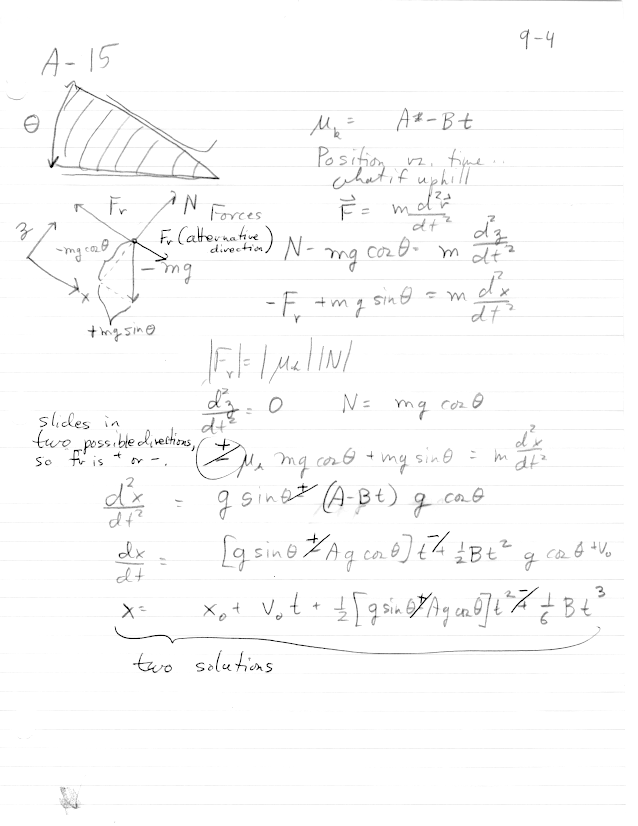 9-4
A-15
θ
μ_k = A - Bt
Position vz. time..
what if uphill
F⃗ = m d²r⃗/dt²
Fr N Forces
z -mg cosθ Fr (alternative direction)
-mg
x
+mg sinθ
N - mg cosθ = m d²z/dt²
-Fr + mg sinθ = m d²x/dt²
|Fr| = |μk| |N|
d²z/dt² = 0 N = mg cosθ
slides in
two possible directions,
so fr is + or -.
± μk mg cosθ + mg sinθ = m d²x/dt²
d²x/dt² = g sinθ ± (A-Bt) g cosθ
dx/dt = [g sinθ ± Ag cosθ] t ∓ ½Bt² g cosθ + V₀
x = x₀ + V₀t + ½ [g sinθ ± Ag cosθ] t² ∓ 1/6 Bt³
two solutions